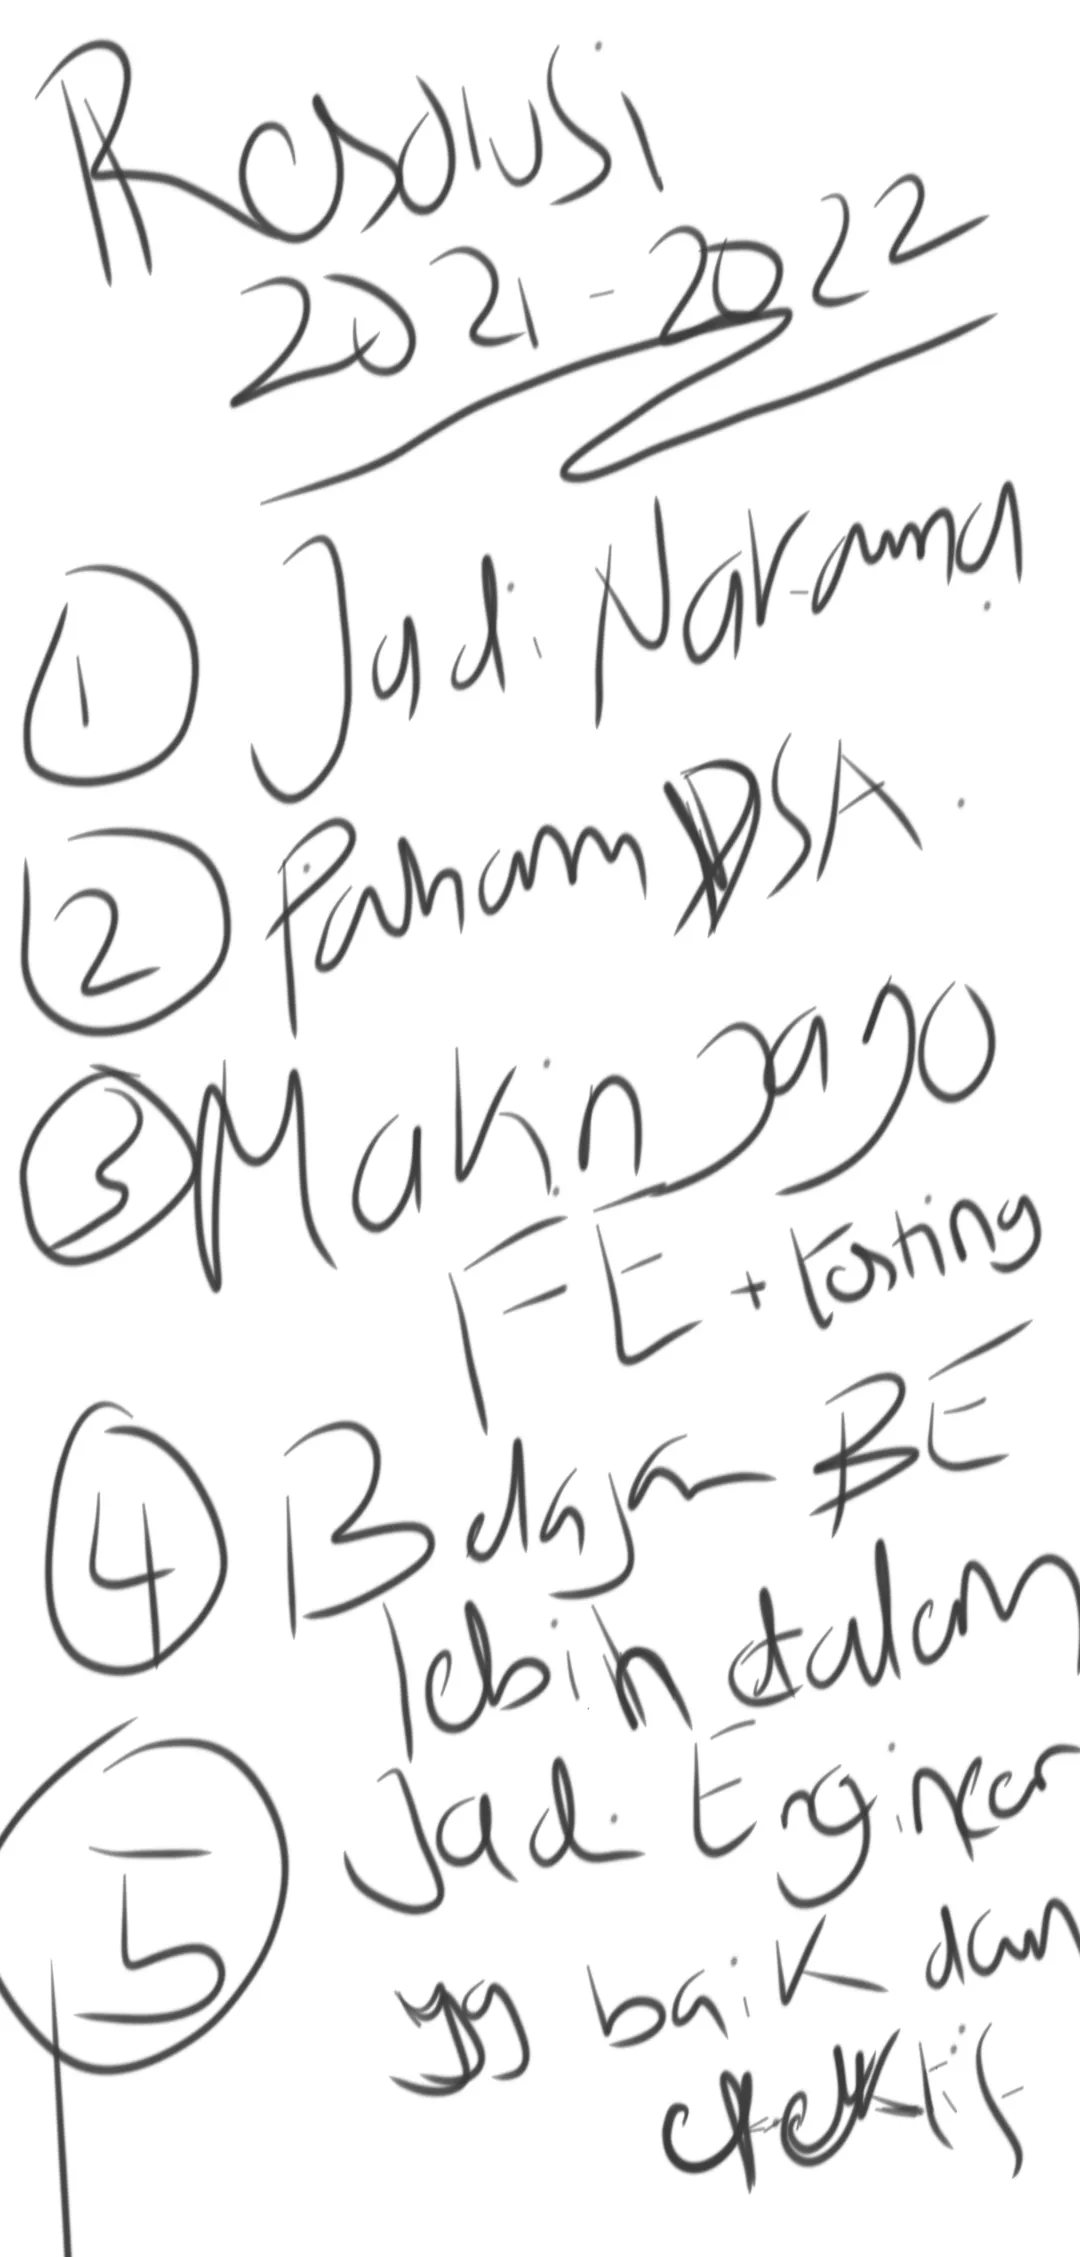 Resolusi
2021-2022
1 Jadi Nakama
2 Paham DSA
3 Makin Jago
FE + testing
4 Belajar BE
lebih dalam
5 Jadi Engineer
yg baik dan
efektif